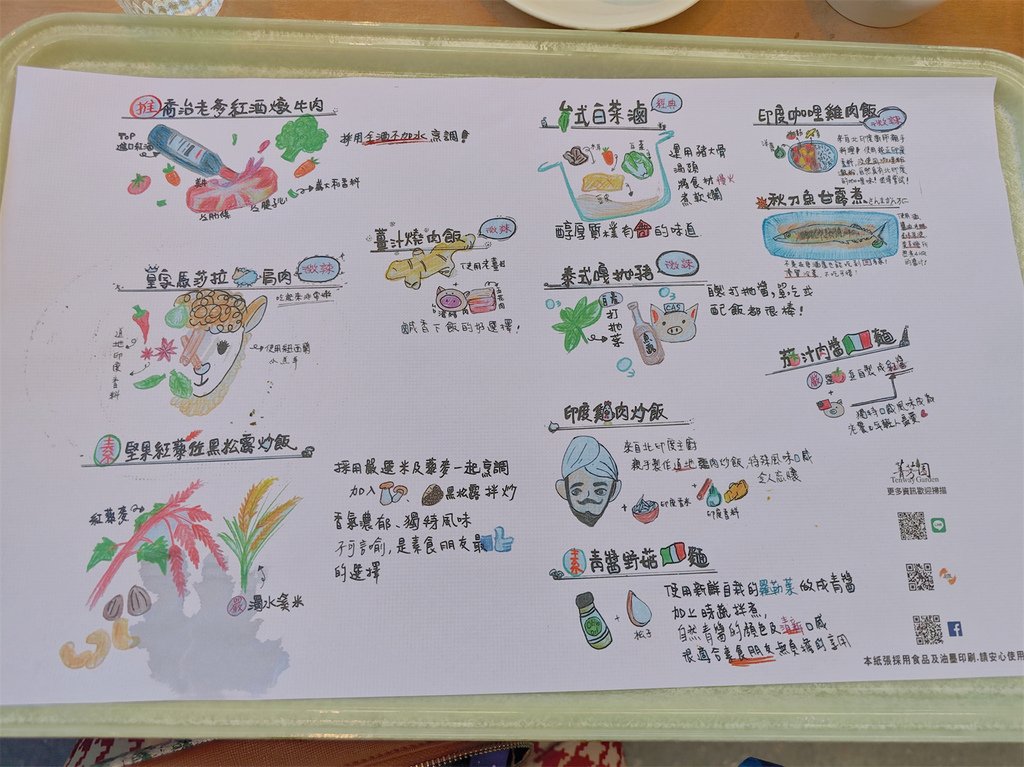 推 喬治老爹紅酒燉牛肉
TOP
進口紅酒
採用全酒不加水烹調!
薑汁燒肉飯 微辣
使用老薑母
鹹香下飯的好選擇!
皇家馬莎拉 肩肉 微辣
道地印度香料
使用紐西蘭
小羔羊
素 堅果紅藜佐黑松露炒飯
紅藜麥
嚴 濁水溪米
採用嚴選米及藜麥一起烹調
加入 黑松露拌炒
香氣濃郁、獨特風味
不可言喻,是素食朋友最
的選擇
台式白菜滷 經典
運用豬大骨
湯頭
將食材慢火
煮軟爛
醇厚質樸有 的味道
泰式嘎拋豬 微辣
打拋菜
魚露
CAS
自製打拋醬,單吃或
配飯都很棒!
印度雞肉炒飯
來自北印度主廚
親手製作道地雞肉炒飯,特殊風味口感
令人忘懷
印度香米
印度香料
素 青醬野菇 麵
松子
使用新鮮自栽的羅勒葉做成青醬
加上時蔬拌煮,
自然青醬的顏色及清新口感
很適合素食朋友無負擔的享用
印度咖哩雞肉飯 微辣
秋刀魚甘露煮 さんまかんろに
茄汁肉醬 麵
菁芳園
Tenway Garden
更多資訊歡迎掃描
本紙張採用食品及油墨印刷,請安心使用